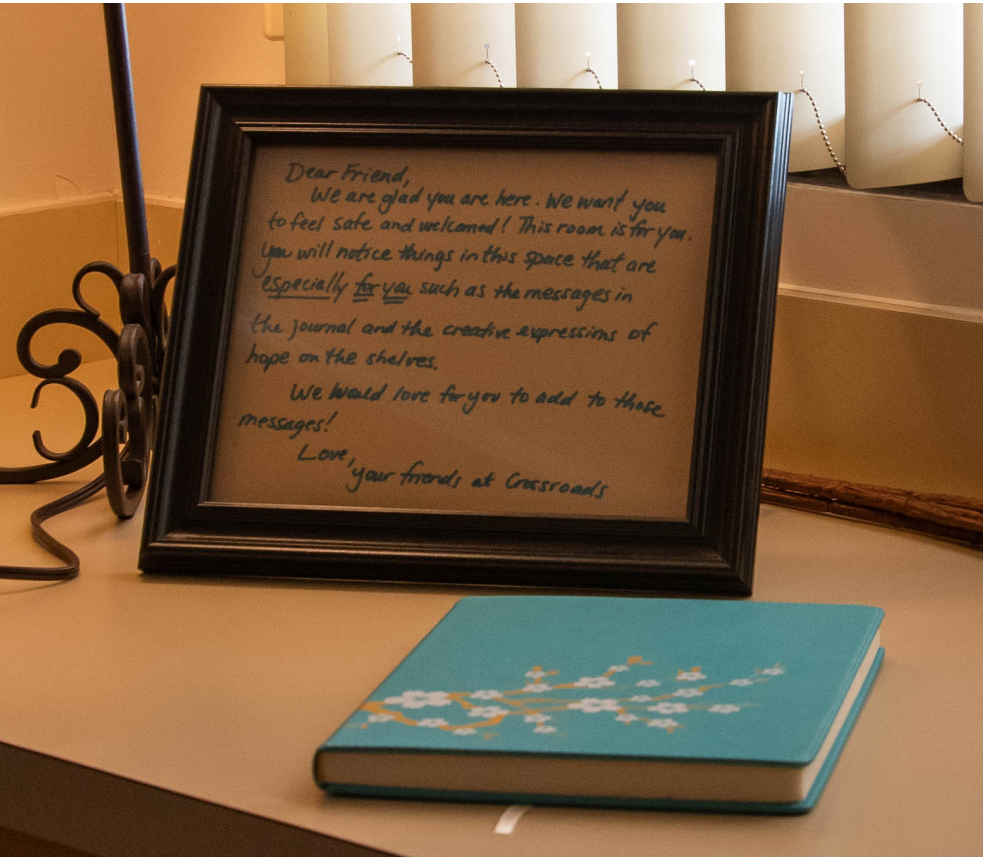 Dear Friend,
We are glad you are here. We want you
to feel safe and welcomed! This room is for you.
You will notice things in this space that are
especially for you such as the messages in
the journal and the creative expressions of
hope on the shelves.
We would love for you to add to those
messages!
Love,
your friends at Crossroads